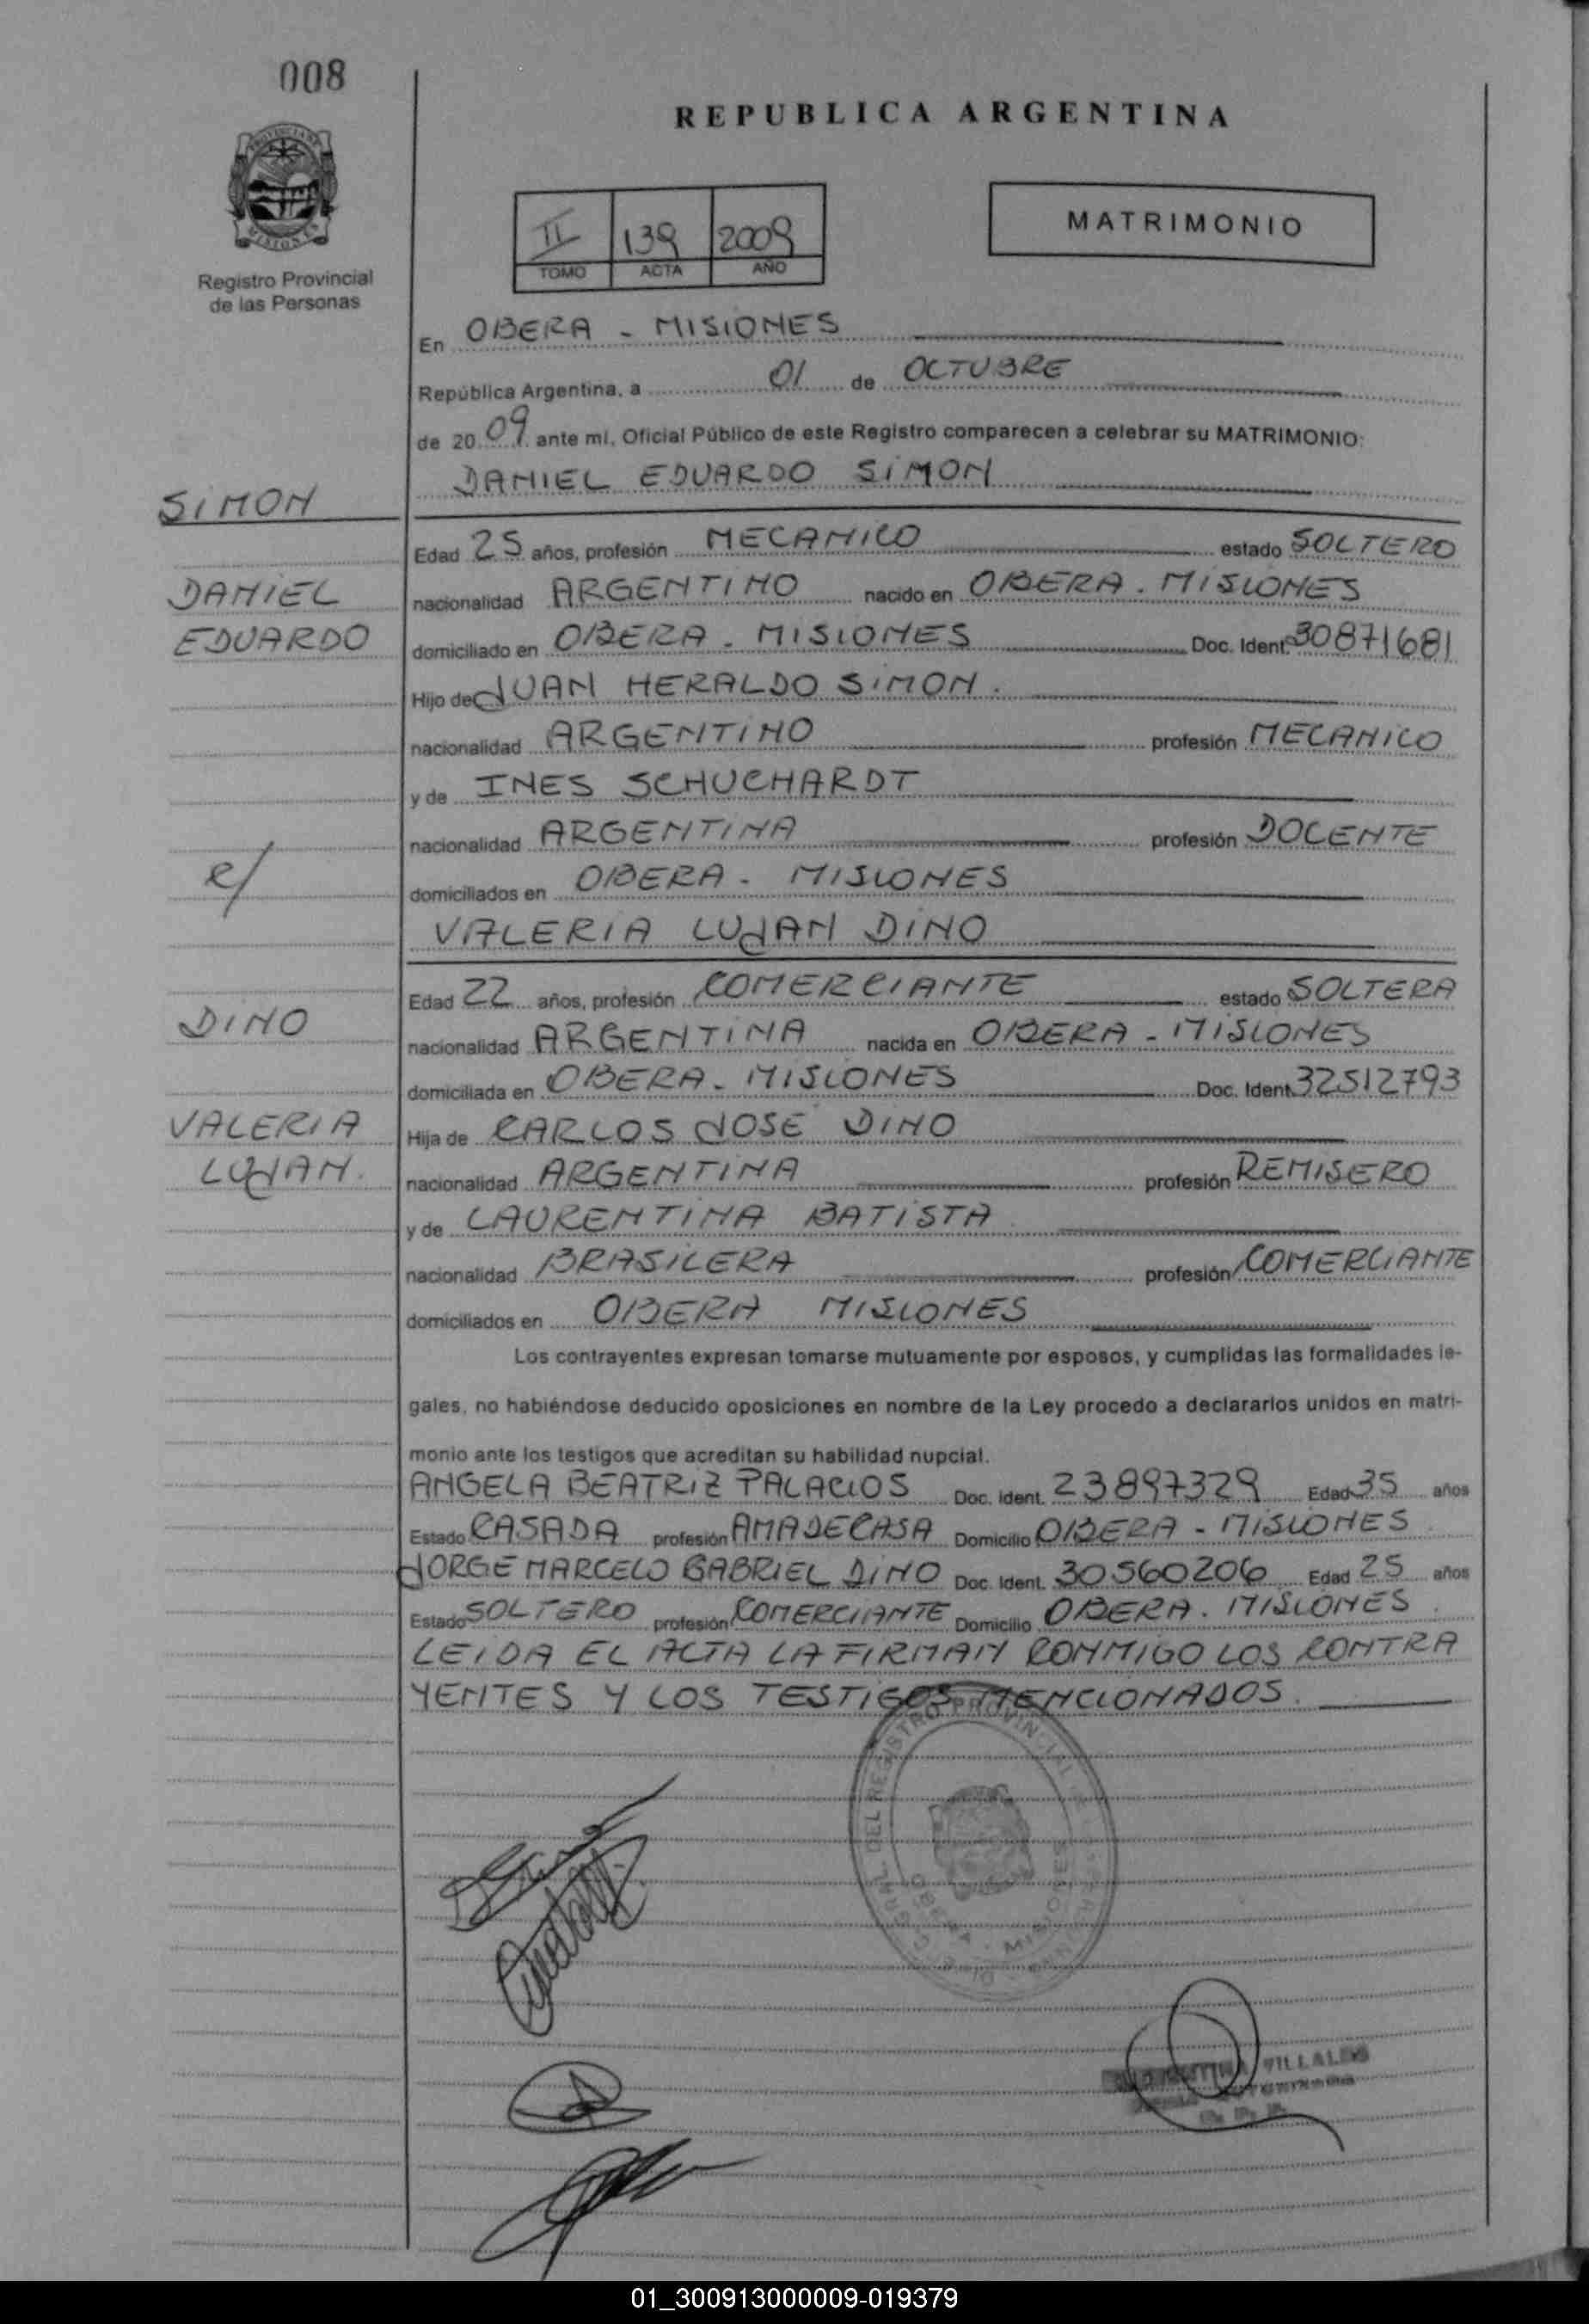 008
REPUBLICA ARGENTINA
Registro Provincial
de las Personas
II 139 2009
TOMO ACTA AÑO
MATRIMONIO
En OBERA - MISIONES
República Argentina, a 01 de OCTUBRE
de 20 09 ante mí, Oficial Público de este Registro comparecen a celebrar su MATRIMONIO:
DANIEL EDUARDO SIMON
SIMON
Edad 25 años, profesión MECANICO estado SOLTERO
DANIEL nacionalidad ARGENTINO nacido en OBERA - MISIONES
EDUARDO domiciliado en OBERA - MISIONES Doc. Ident. 30871681
Hijo de JUAN HERALDO SIMON.
nacionalidad ARGENTINO profesión MECANICO
y de INES SCHUCHARDT
nacionalidad ARGENTINA profesión DOCENTE
c/ domiciliados en OBERA - MISIONES
VALERIA LUJAN DINO
Edad 22 años, profesión COMERCIANTE estado SOLTERA
DINO nacionalidad ARGENTINA nacida en OBERA - MISIONES
domiciliada en OBERA - MISIONES Doc. Ident. 32512793
VALERIA Hija de CARLOS JOSE DINO
LUJAN. nacionalidad ARGENTINA profesión REMISERO
y de LAURENTINA BATISTA
nacionalidad BRASILERA profesión COMERCIANTE
domiciliados en OBERA MISIONES
Los contrayentes expresan tomarse mutuamente por esposos, y cumplidas las formalidades le-
gales, no habiéndose deducido oposiciones en nombre de la Ley procedo a declararlos unidos en matri-
monio ante los testigos que acreditan su habilidad nupcial.
ANGELA BEATRIZ PALACIOS Doc. Ident. 23897329 Edad 35 años
Estado CASADA profesión AMADECASA Domicilio OBERA - MISIONES
JORGE MARCELO GABRIEL DINO Doc. Ident. 30560206 Edad 25 años
Estado SOLTERO profesión COMERCIANTE Domicilio OBERA - MISIONES
LEIDA EL ACTA LA FIRMAN CONMIGO LOS CONTRA
YENTES Y LOS TESTIGOS MENCIONADOS.
VILLALBA
01_300913000009-019379